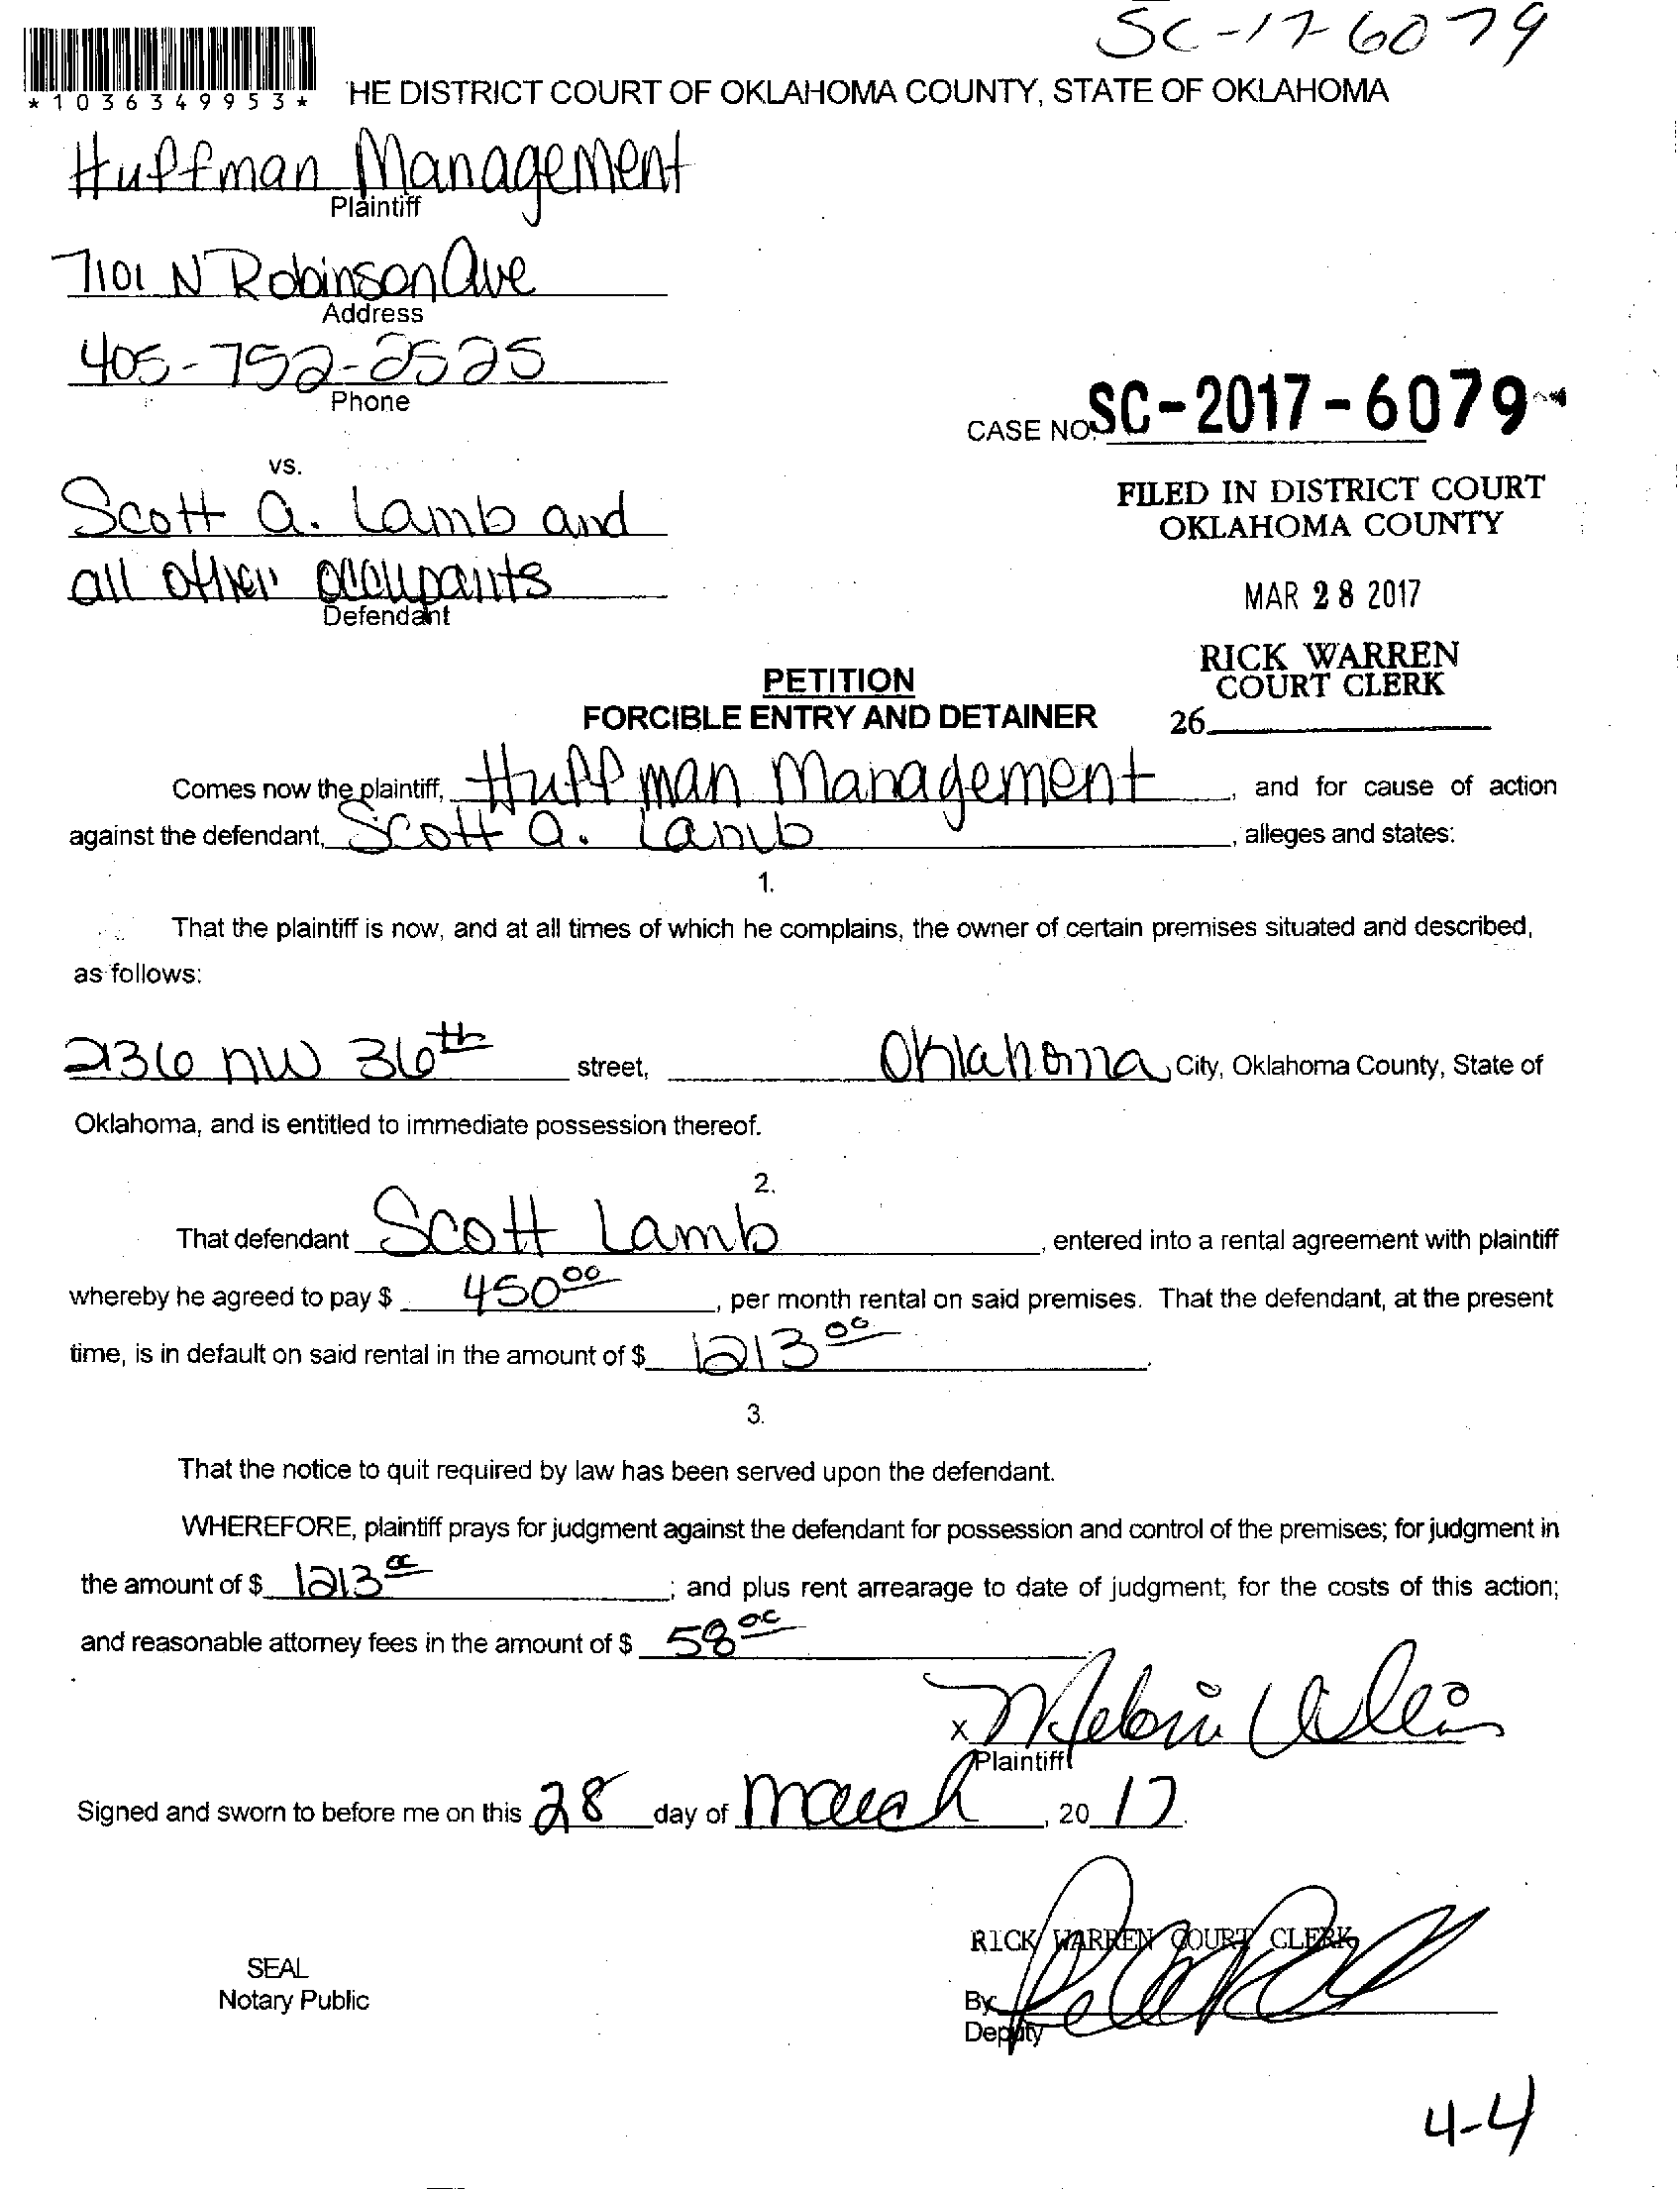 SC-17-6079
*1036349953*
HE DISTRICT COURT OF OKLAHOMA COUNTY, STATE OF OKLAHOMA
Huffman Management
Plaintiff
7101 N Robinson Ave
Address
405-752-2525
Phone
CASE NO. SC-2017-6079
vs.
FILED IN DISTRICT COURT
OKLAHOMA COUNTY
Scott A. Lamb and
all other occupants
Defendant
MAR 28 2017
RICK WARREN
COURT CLERK
26
PETITION
FORCIBLE ENTRY AND DETAINER
Comes now the plaintiff, Huffman Management, and for cause of action
against the defendant, Scott A. Lamb, alleges and states:
1.
That the plaintiff is now, and at all times of which he complains, the owner of certain premises situated and described,
as follows:
2136 NW 36th street, Oklahoma City, Oklahoma County, State of
Oklahoma, and is entitled to immediate possession thereof.
2.
That defendant Scott Lamb, entered into a rental agreement with plaintiff
whereby he agreed to pay $ 450 00, per month rental on said premises. That the defendant, at the present
time, is in default on said rental in the amount of $ 1213 00.
3.
That the notice to quit required by law has been served upon the defendant.
WHEREFORE, plaintiff prays for judgment against the defendant for possession and control of the premises; for judgment in
the amount of $ 1213 00; and plus rent arrearage to date of judgment; for the costs of this action;
and reasonable attorney fees in the amount of $ 58 00
x
Plaintiff
Signed and sworn to before me on this 28 day of March, 20 17.
RICK WARREN COURT CLERK
SEAL
Notary Public
By
Deputy
4-4